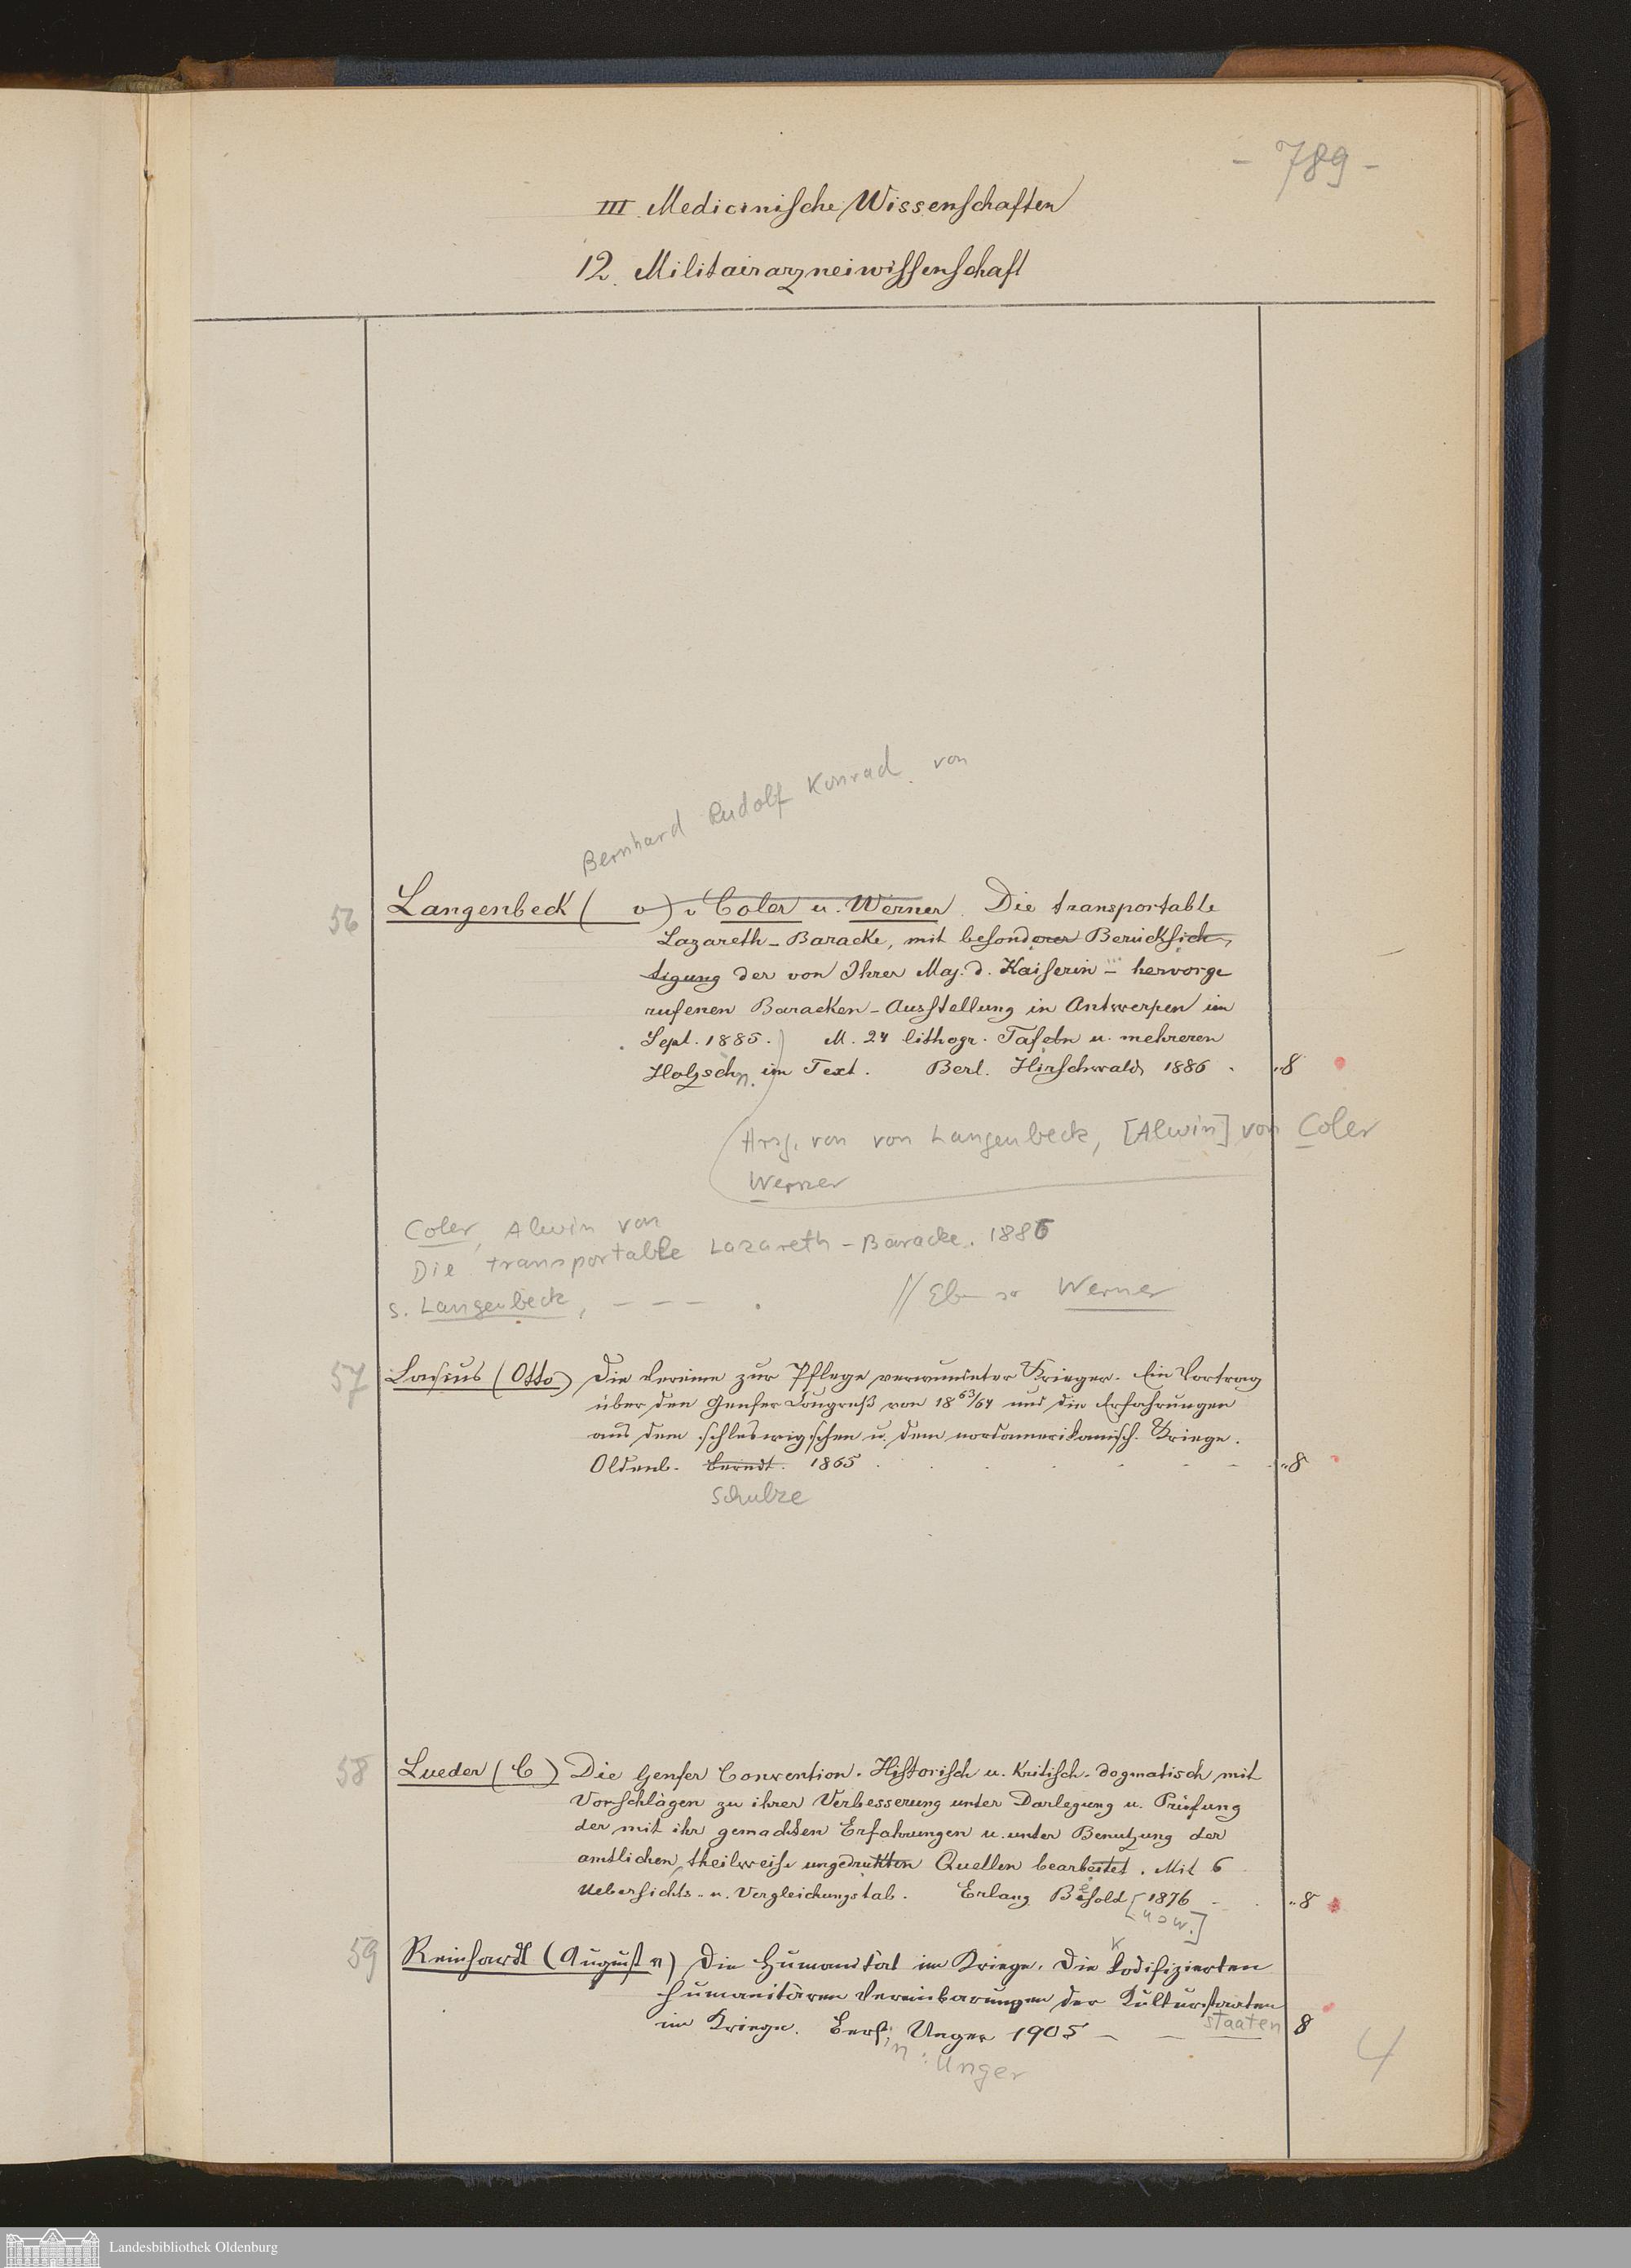 - 789 -
III. Medicinische Wissenschaften
12. Militairarzneiwissenschaft
Bernhard Rudolf Konrad von
56 Langenbeck ( v) v Coler u. Werner. Die transportable
Lazareth-Baracke, mit besonderer Berücksich-
tigung der von Ihrer Maj. d. Kaiserin - hervorge
rufenen Baracken-Ausstellung in Antwerpen im
Sept. 1885.) M. 24 lithogr. Tafeln u. mehreren
Holzschn. im Text. Berl. Hirschwald 1886 . „8
Hrsg. von von Langenbeck, [Alwin] von Coler
Werner
Coler, Alwin von
Die transportable Lazareth-Baracke. 1886
s. Langenbeck, - - - . // Ebenso Werner
57 Lasius (Otto) Die Vereine zur Pflege verwundeter Krieger. Ein Vortrag
über den Genfer Congreß von 1863/64 und die Erfahrungen
aus dem schleswigschen u. dem nordamerikanisch. Kriege.
Oldenb. Berndt. 1865 . „8
Schulze
58 Lueder (C) Die Genfer Convention. Historisch u. Kritisch-dogmatisch mit
Vorschlägen zu ihrer Verbesserung unter Darlegung u. Prüfung
der mit ihr gemachten Erfahrungen u. unter Benutzung der
amtlichen, theilweise ungedrukten Quellen bearbeitet. Mit 6
Uebersichts- u. Vergleichungstab. Erlang Besold 1876 - „8
[usw.]
59 Reinhardt (August n) Die Humanität im Kriege. Die kodifizierten
humanitären Vereinbarungen der Kulturstaaten
staaten
im Kriege. Berlin, Unger 1905 - 8
in: Unger
4
Landesbibliothek Oldenburg